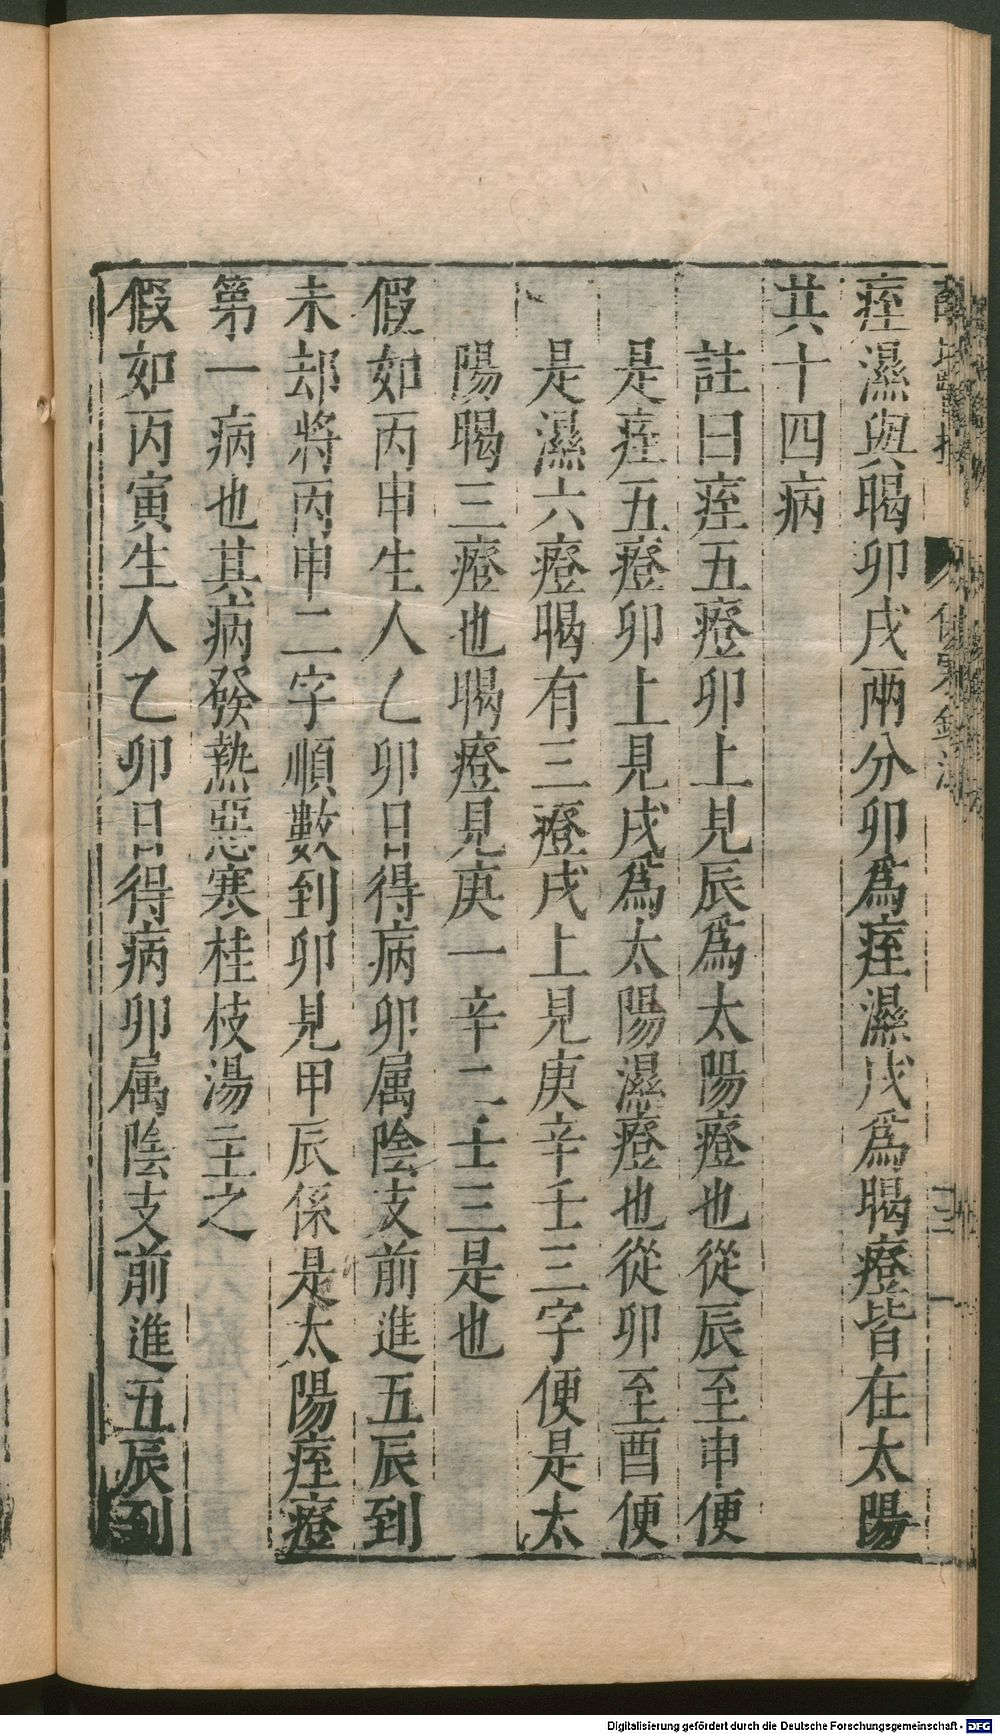 痓濕與暍卯戌兩分卯爲痓濕戌爲暍𤺺皆在太陽
共十四病
註曰痓五𤺺卯上見辰爲太陽𤺺也從辰至申便
是痓五𤺺卯上見戌爲太陽濕𤺺也從卯至酉便
是濕六𤺺暍有三𤺺戌上見庚辛壬三字便是太
陽暍三𤺺也暍𤺺見庚一辛二壬三是也
假如丙申生人乙卯日得病卯属陰支前進五辰到
未却將丙申二字順數到卯見甲辰係是太陽痓𤺺
第一病也其病發熱惡寒桂枝湯主之
假如丙寅生人乙卯日得病卯属陰支前進五辰到
Digitalisierung gefördert durch die Deutsche Forschungsgemeinschaft - DFG